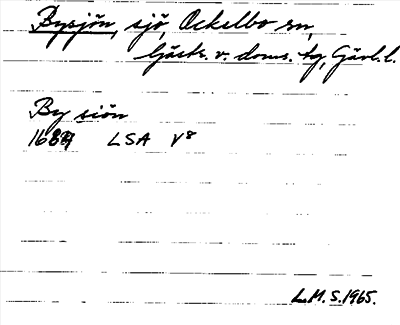 Bysjön, sjö, Ockelbo sn,
Gästr. v. doms. tg, Gävl. l.
By siön
LSA V8
L.M.S. 1965.